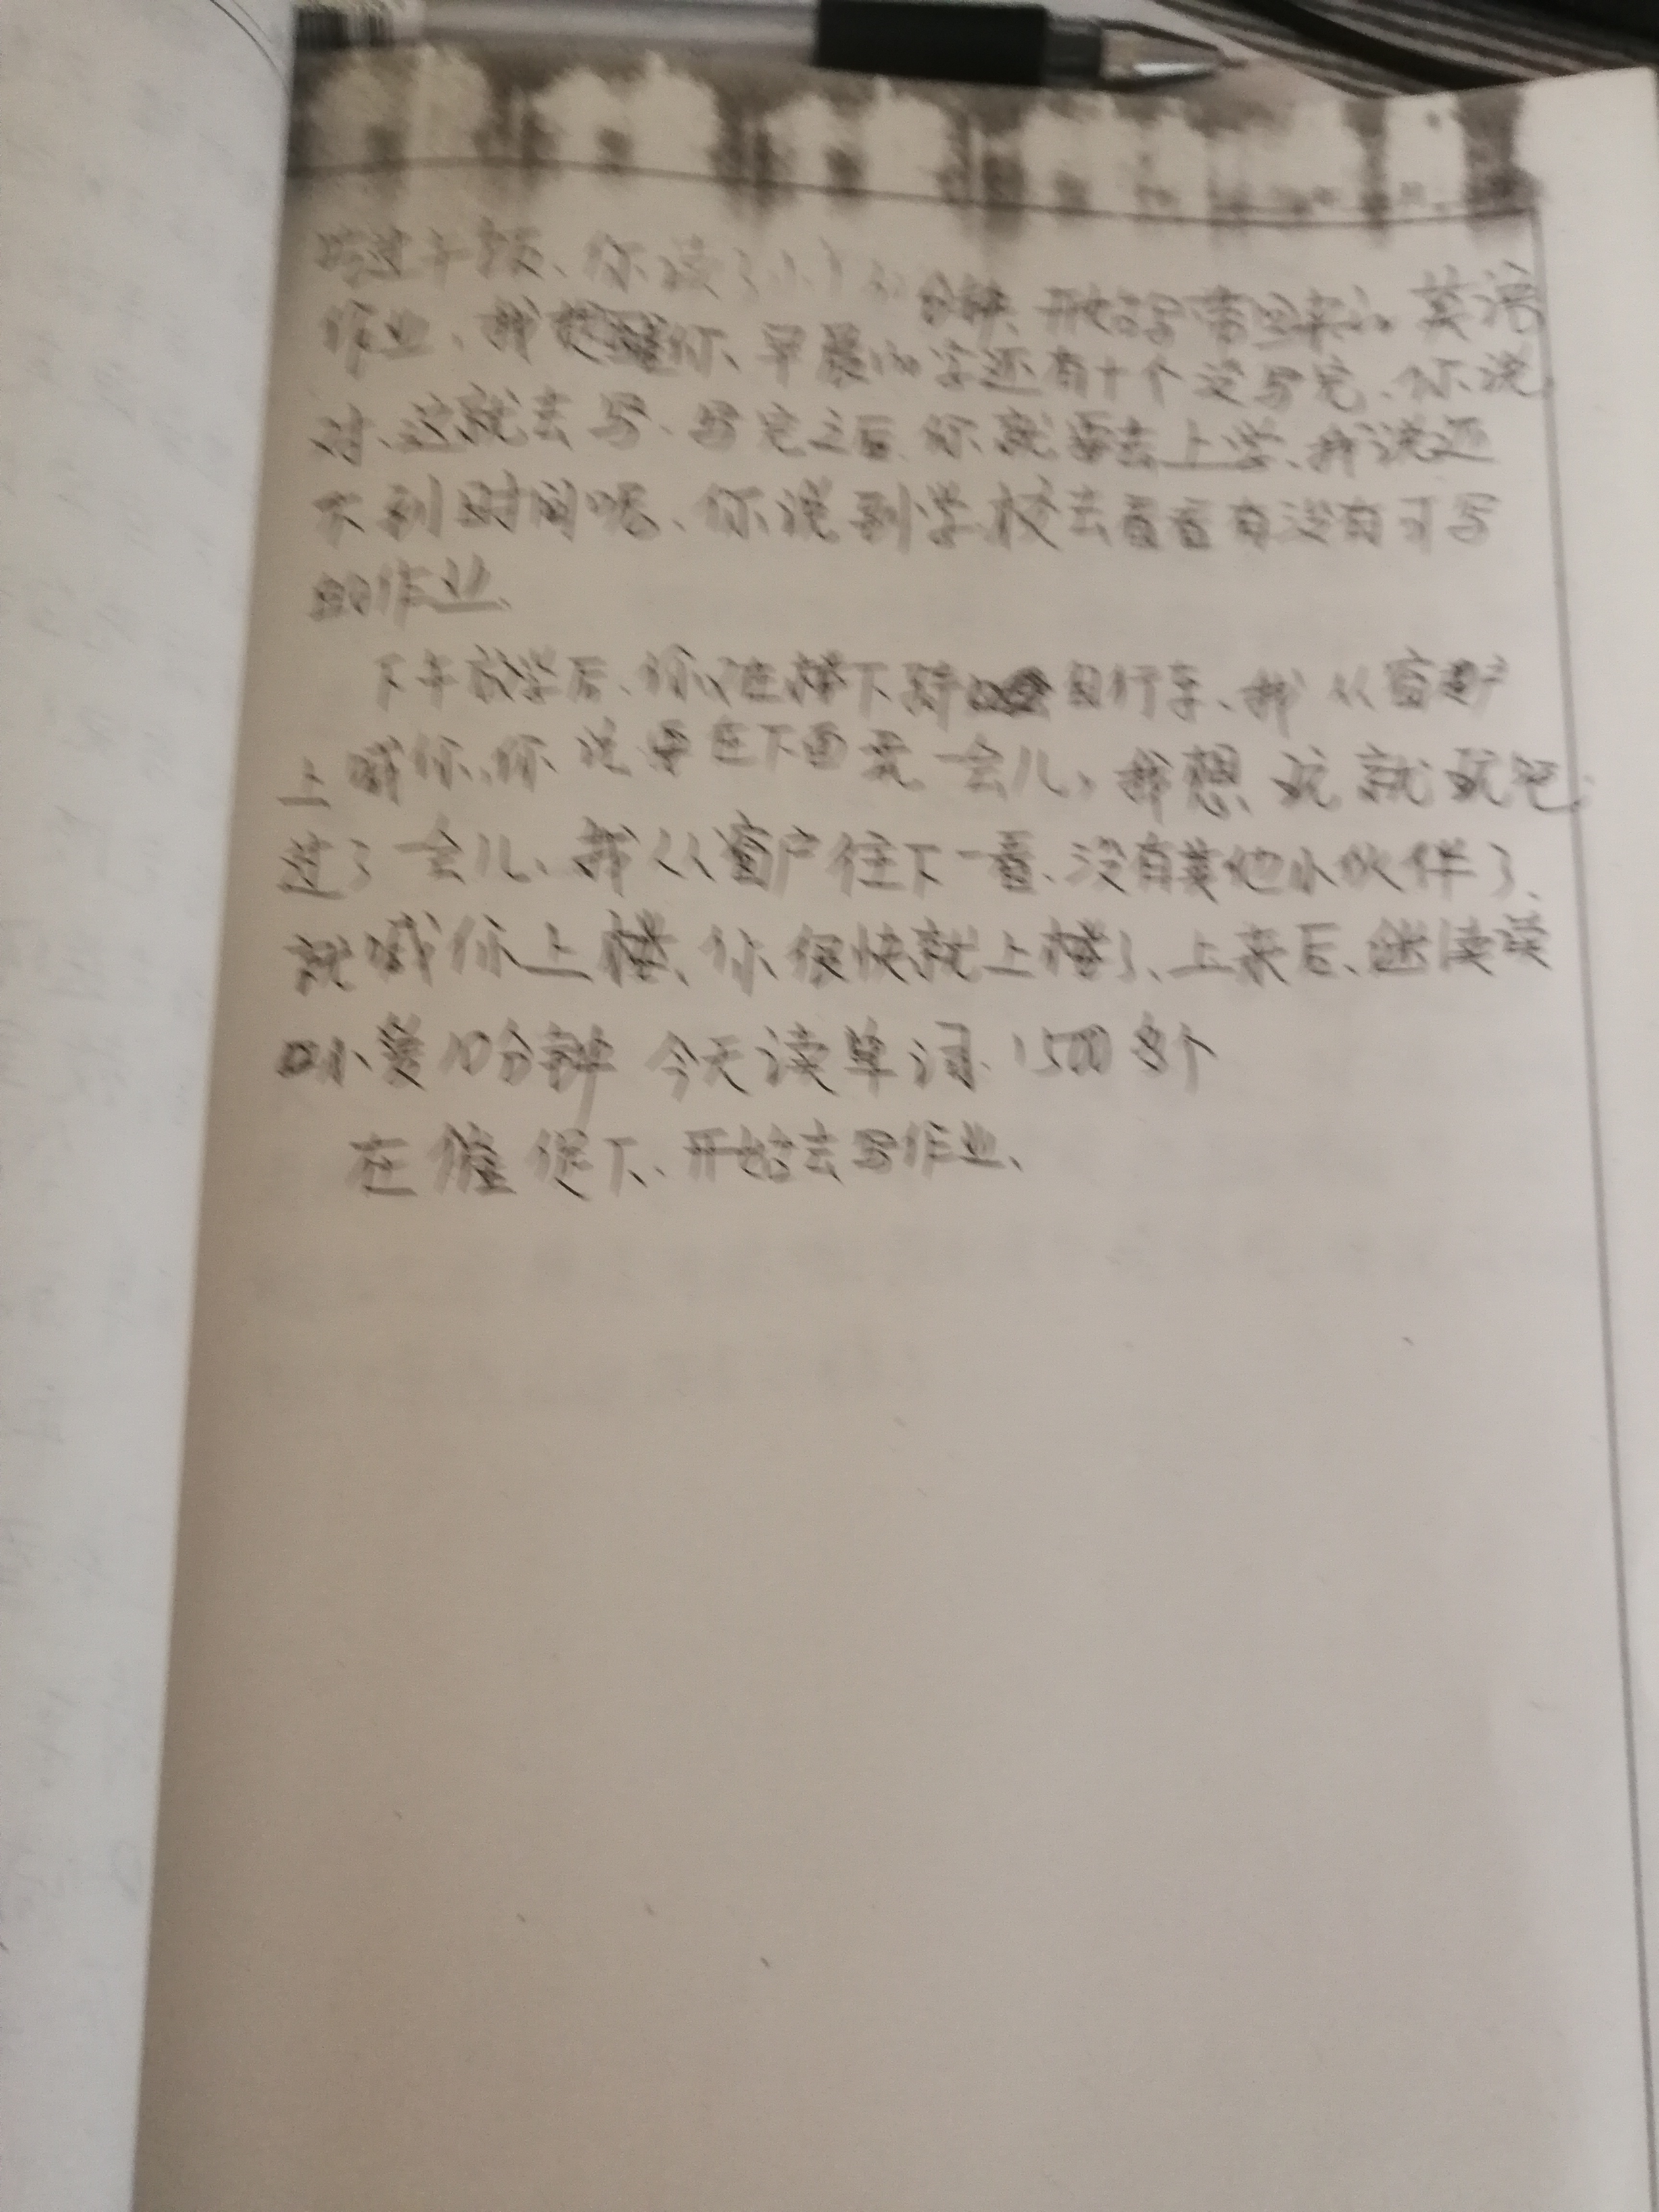 吃过午饭、你读了 分钟、开始写带回来的英语
作业、我提醒你、早晨的字还有十个没写完、你说
对、这就去写、写完之后、你就要去上学、我说还
不到时间呢、你说到学校去看看有没有可写
的作业、
下午放学后、你在楼下骑自行车、我从窗户
上喊你、你说要在下面玩一会儿，我想玩就玩吧、
过了一会儿、我从窗户往下一看、没有其他小伙伴了、
就喊你上楼、你很快就上楼了、上来后、继续读
小爱10分钟 今天读单词、1500多个
在催促下、开始去写作业、